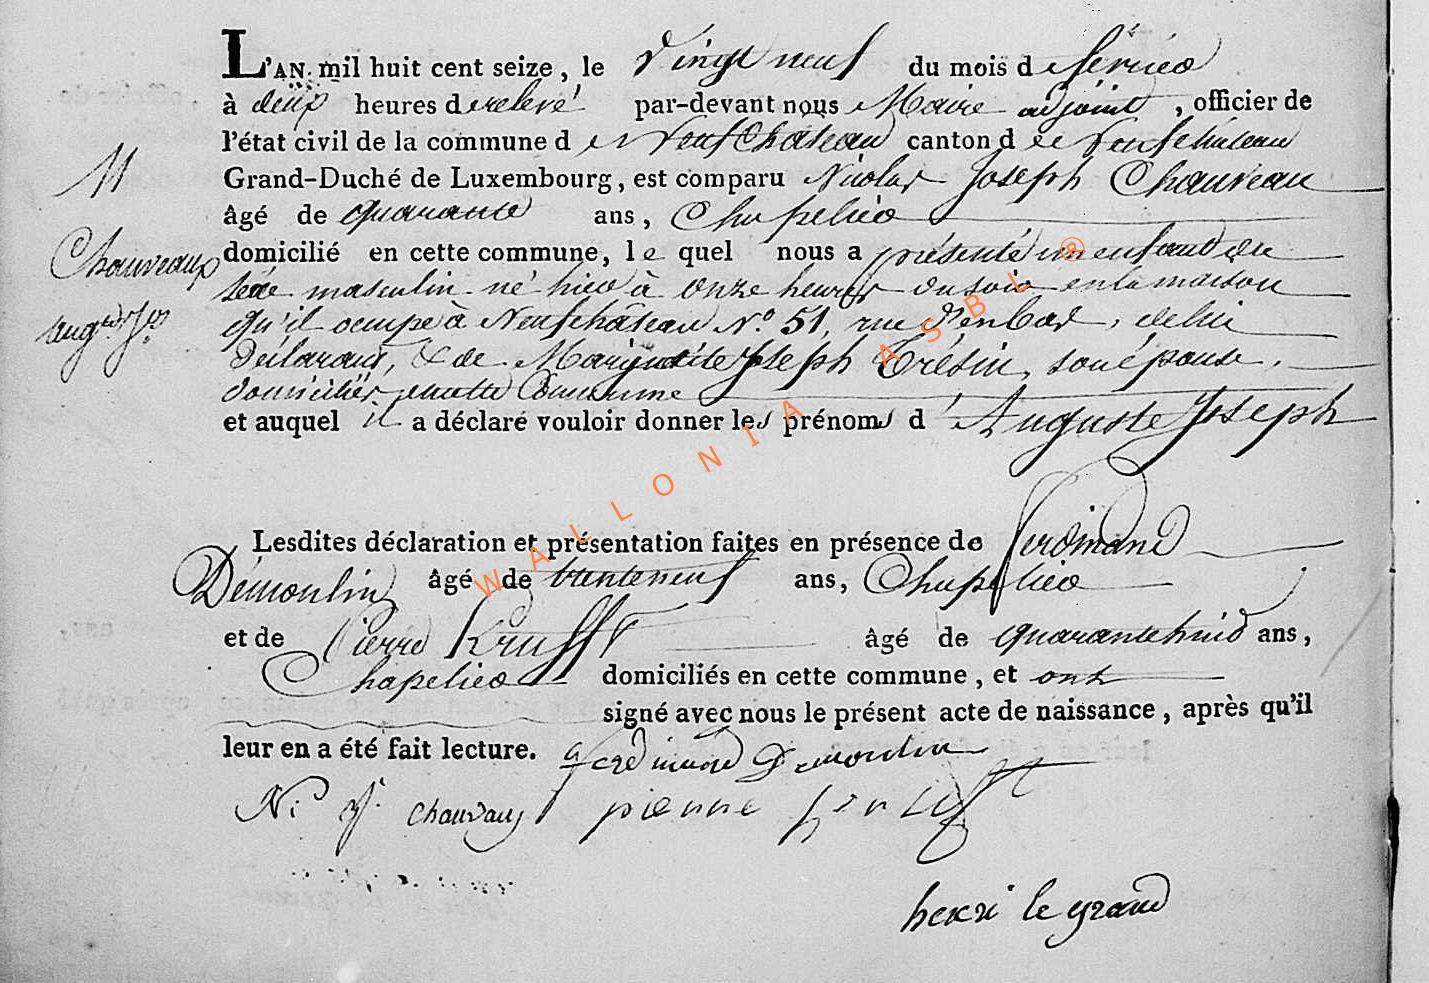 L'AN mil huit cent seize, le Vingt neuf du mois de février
à deux heures de relevé par-devant nous Maire adjoint, officier de
l'état civil de la commune de Neufchâteau canton de Neufchâteau
11
Grand-Duché de Luxembourg, est comparu Nicolas Joseph Chauveau
âgé de quarante ans, Chapelier
Chauveaux
domicilié en cette commune, lequel nous a présenté un enfant du
sexe masculin né hier à onze heures du soir en la maison
Augte Jos
qu'il occupe à Neufchâteau No. 51, rue d'enbas, de lui
Déclarant, & de Joseph Crésin, son épouse,
domiciliés en cette Commune
et auquel il a déclaré vouloir donner les prénoms d'Auguste Joseph
Lesdites déclaration et présentation faites en présence de ferdinand
Démoulin âgé de trente neuf ans, Chapelier
et de Pierre Krufft âgé de quarante huid ans,
Chapelier domiciliés en cette commune, et ont
signé avec nous le présent acte de naissance, après qu'il
leur en a été fait lecture. ferdinand Demoulin
Ni j. chauvaux pierre
henri le grand
WALLONIA ASBL ®